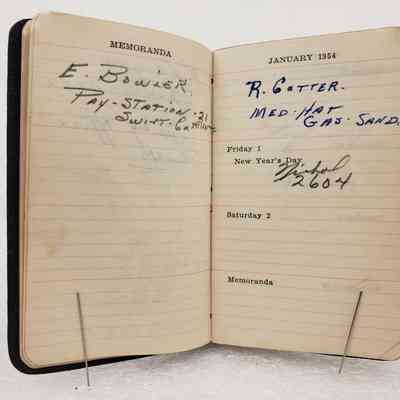 MEMORANDA
E. BOWLER.
PAY-STATION-21
SWIFT-
JANUARY 1954
R. COTTER.
MED-HAT
GAS-SAND.
Friday 1
New Year's Day
Nichol
2604
Saturday 2
Memoranda